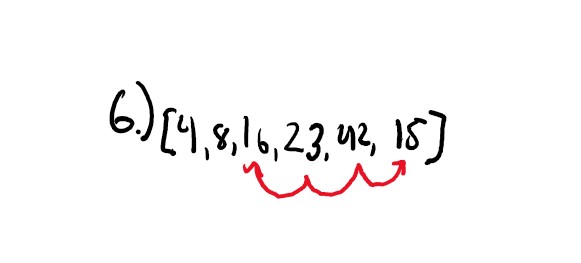 6.) [4,8,16,23,42, 15]